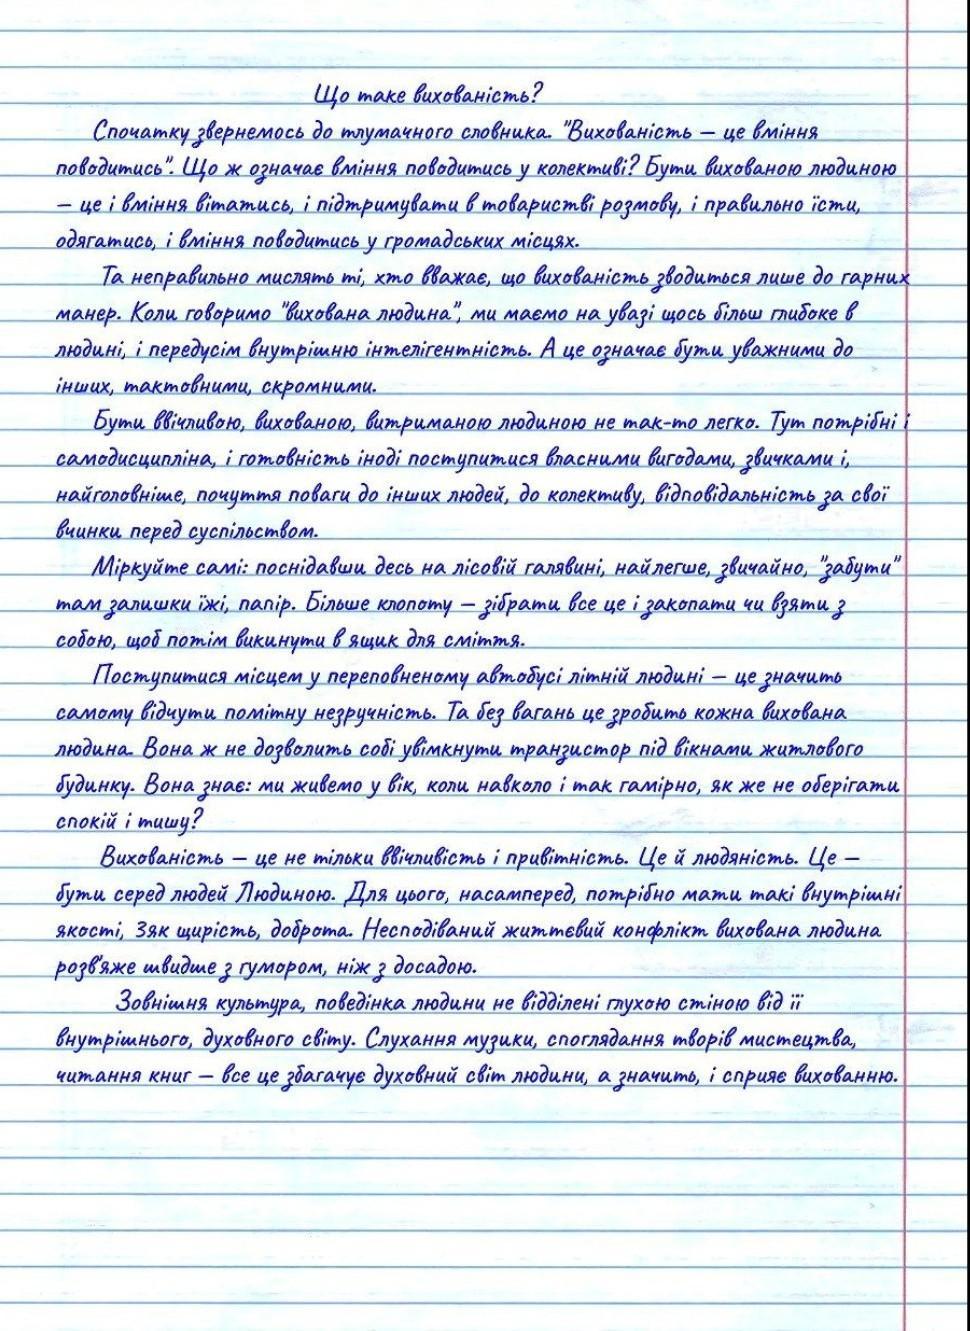 Що таке вихованість?
Спочатку звернемось до тлумачного словника. "Вихованість — це вміння
поводитись". Що ж означає вміння поводитись у колективі? Бути вихованою людиною
— це і вміння вітатись, і підтримувати в товаристві розмову, і правильно їсти,
одягатись, і вміння поводитись у громадських місцях.
Та неправильно мислять ті, хто вважає, що вихованість зводиться лише до гарних
манер. Коли говоримо "вихована людина", ми маємо на увазі щось більш глибоке в
людині, і передусім внутрішню інтелігентність. А це означає бути уважними до
інших, тактовними, скромними.
Бути ввічливою, вихованою, витриманою людиною не так-то легко. Тут потрібні і
самодисципліна, і готовність іноді поступитися власними вигодами, звичками і,
найголовніше, почуття поваги до інших людей, до колективу, відповідальність за свої
вчинки перед суспільством.
Міркуйте самі: поснідавши десь на лісовій галявині, найлегше, звичайно, "забути"
там залишки їжі, папір. Більше клопоту — зібрати все це і закопати чи взяти з
собою, щоб потім викинути в ящик для сміття.
Поступитися місцем у переповненому автобусі літній людині — це значить
самому відчути помітну незручність. Та без вагань це зробить кожна вихована
людина. Вона ж не дозволить собі увімкнути транзистор під вікнами житлового
будинку. Вона знає: ми живемо у вік, коли навколо і так гамірно, як же не оберігати
спокій і тишу?
Вихованість — це не тільки ввічливість і привітність. Це й людяність. Це —
бути серед людей Людиною. Для цього, насамперед, потрібно мати такі внутрішні
якості, 3як щирість, доброта. Несподіваний життєвий конфлікт вихована людина
розв'яже швидше з гумором, ніж з досадою.
Зовнішня культура, поведінка людини не відділені глухою стіною від її
внутрішнього, духовного світу. Слухання музики, споглядання творів мистецтва,
читання книг — все це збагачує духовний світ людини, а значить, і сприяє вихованню.